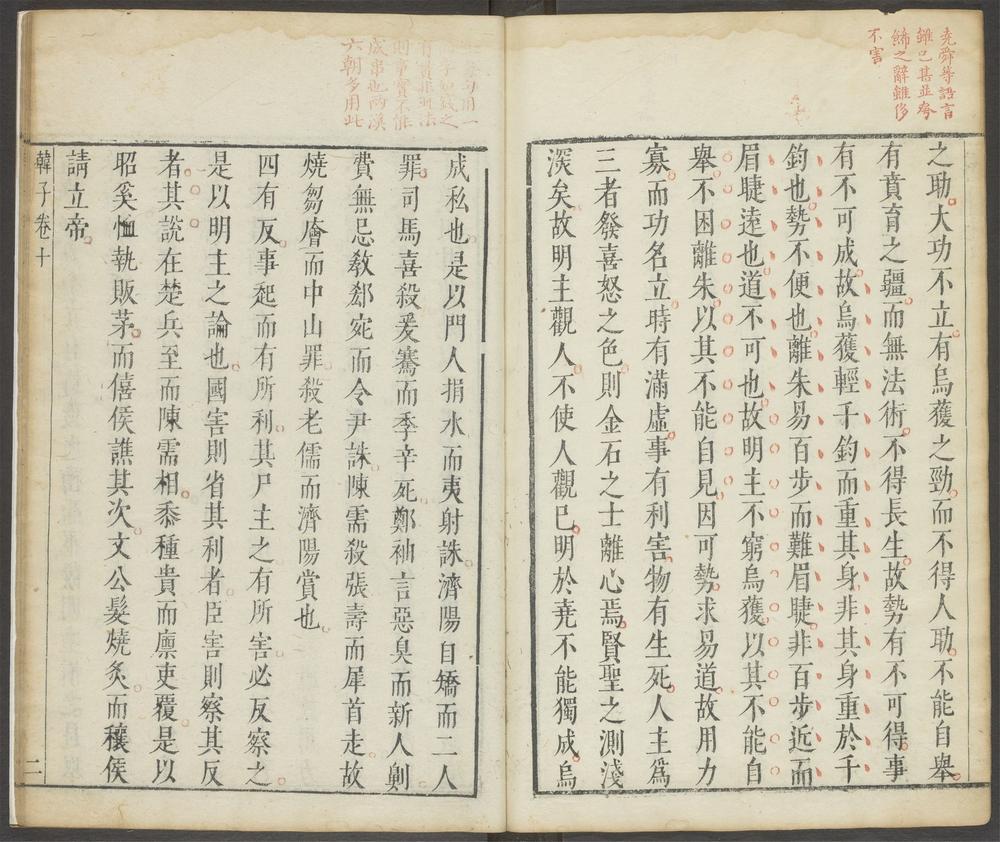 堯舜等語言
雖已甚並夸
歸之辭雖侈
不害
之助大功不立有烏獲之勁而不得人助不能自舉
有賁育之疆而無法術不得長生故勢有不可得事
有不可成故烏獲輕千鈞而重其身非其身重於千
鈞也勢不便也離朱易百步而難眉睫非百步近而
眉睫逺也道不可也故明主不窮烏獲以其不能自
舉不困離朱以其不能自見因可勢求易道故用力
寡而功名立時有滿虛事有利害物有生死人主爲
三者發喜怒之色則金石之士離心焉賢聖之測淺
深矣故明主觀人不使人觀已明於堯不能獨成烏
用一
錢之
有賞非此法
則事實不惟
成串也兩漢
六朝多用此
成私也是以門人捐水而夷射誅濟陽自矯而二人
罪司馬喜殺爰騫而季辛死鄭袖言惡臭而新人劓
費無忌教郄宛而令尹誅陳需殺張壽而犀首走故
燒芻廥而中山罪殺老儒而濟陽賞也
四有反事起而有所利其尸主之有所害必反察之
是以明主之論也國害則省其利者臣害則察其反
者其說在楚兵至而陳需相黍種貴而廩吏覆是以
昭奚恤執販茅而僖侯譙其次文公髮燒炙而穰侯
請立帝
韓子卷十
二